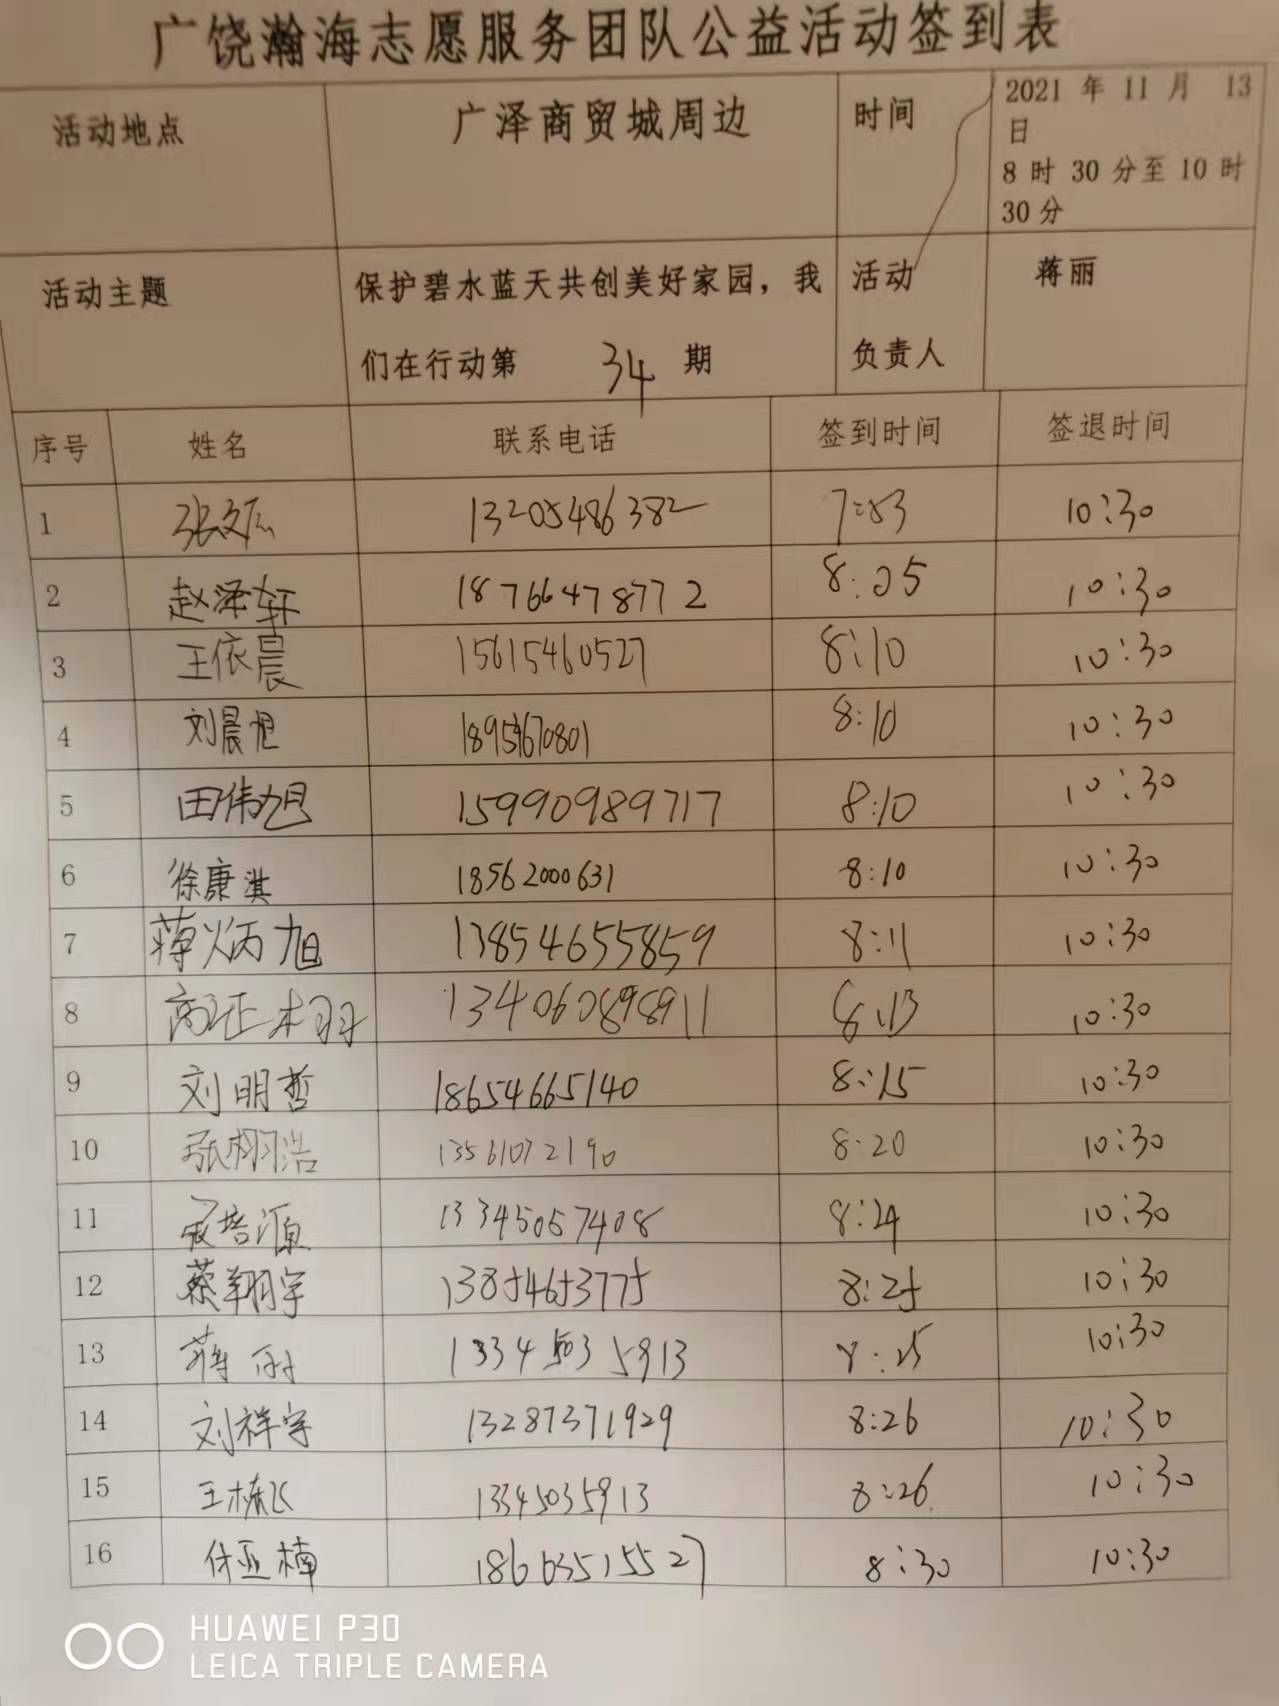 广饶瀚海志愿服务团队公益活动签到表
活动地点 广泽商贸城周边 时间 2021 年 11 月 13
日
8 时 30 分至 10 时
30 分
活动主题 保护碧水蓝天共创美好家园，我 活动 蒋丽
们在行动第 34 期 负责人
序号 姓名 联系电话 签到时间 签退时间
1 13205486382 7:53 10:30
2 赵泽轩 18766478772 8:05 10:30
3 王依晨 15615460527 8:10 10:30
4 刘晨旭 8:10 10:30
5 田伟旭 15990989717 8:10 10:30
6 徐康淇 18562000631 8:10 10:30
7 蒋炳旭 13854655859 8:11 10:30
8 8:13 10:30
9 刘明哲 18654665140 8:15 10:30
10 张栩浩 13561072190 8:20 10:30
11 培源 13345057408 8:24 10:30
12 蔡翔宇 13854653775 8:25 10:30
13 蒋丽 13345035913 8:25 10:30
14 刘祥宇 13287371929 8:26 10:30
15 王栋飞 13345035913 8:26 10:30
16 付亚楠 18663515527 8:30 10:30
HUAWEI P30
LEICA TRIPLE CAMERA